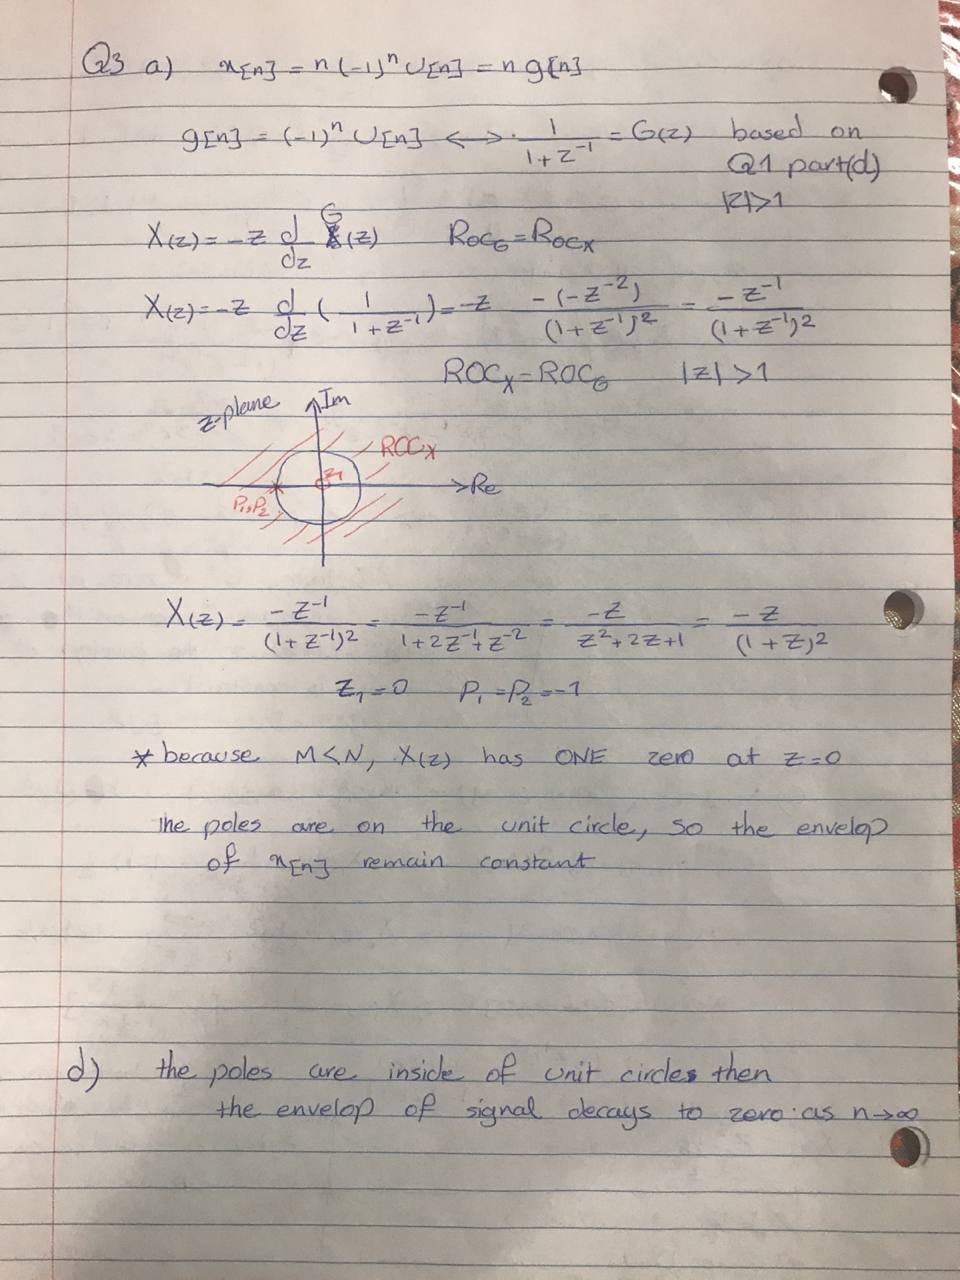 Q3 a) x[n] = n(-1)ⁿ U[n] = n g[n]
g[n] = (-1)ⁿ U[n] <—> 1/(1+z⁻¹) = G(z) based on
Q1 part(d)
|z|>1
X(z) = -z d/dz G(z) ROC_G = ROC_X
X(z) = -z d/dz (1/(1+z⁻¹)) = -z -(-z⁻²)/(1+z⁻¹)² = -z⁻¹/(1+z⁻¹)²
ROC_X = ROC_G |z| >1
z-plane Im
ROC_X
z₁
Re
P₁,P₂
X(z) = -z⁻¹/(1+z⁻¹)² = -z⁻¹/(1+2z⁻¹+z⁻²) = -z/(z²+2z+1) = -z/(1+z)²
z₁=0 P₁=P₂=-1
* because M<N, X(z) has ONE zero at z=0
The poles are on the unit circle, so the envelop
of x[n] remain constant
d) the poles are inside of unit circles then
the envelop of signal decays to zero as n→∞